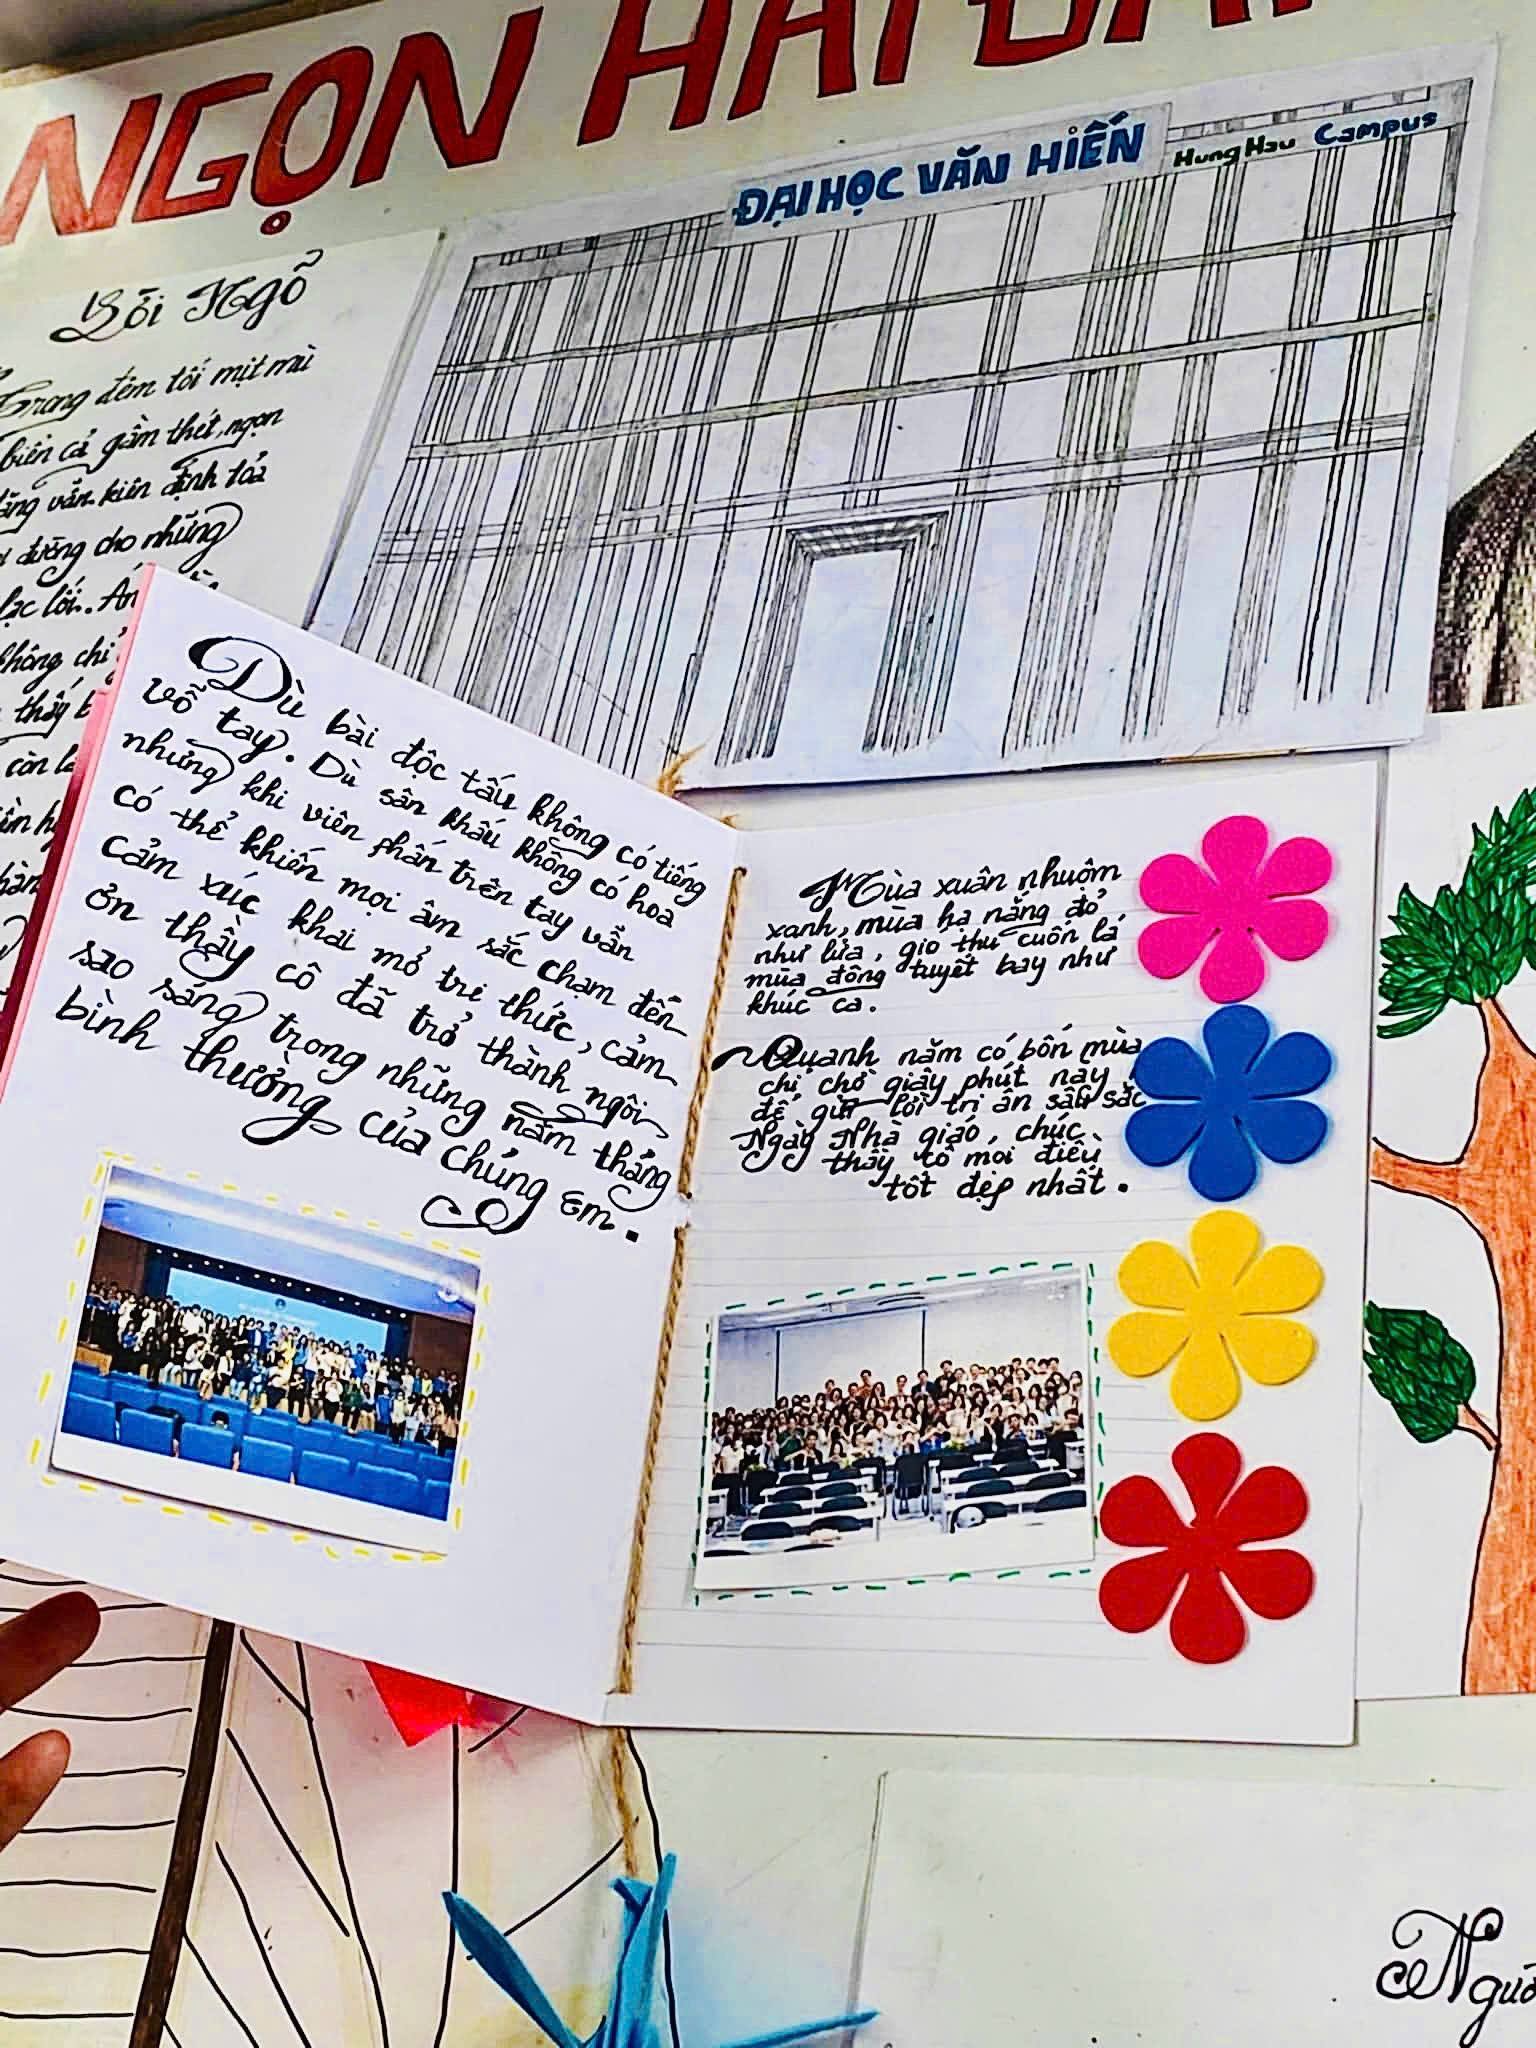 NGỌN HẢI ĐĂ
ĐẠI HỌC VĂN HIẾN
HungHau Campus
Lời Ngỏ
Trong đêm tối mịt mù
biển cả gầm thét, ngọn
vẫn kiên định tỏa
đường cho những
lạc lối. Án
không chỉ
thấy
còn
Dù bài độc tấu không có tiếng
vỗ tay. Dù sân khấu không có hoa
nhưng khi viên phấn trên tay vẫn
có thể khiến mọi âm sắc chạm đến
cảm xúc khai mở tri thức, cảm
ơn thầy cô đã trở thành ngôi
sao sáng trong những năm tháng
bình thường của chúng em.
Mùa xuân nhuộm
xanh, mùa hạ nắng đỏ
như lửa, gió thu cuốn lá
mùa đông tuyết bay như
khúc ca.
Quanh năm có bốn mùa
chỉ chờ giây phút này
để gửi lời tri ân sâu sắc
Ngày Nhà giáo, chúc
thầy cô mọi điều
tốt đẹp nhất.